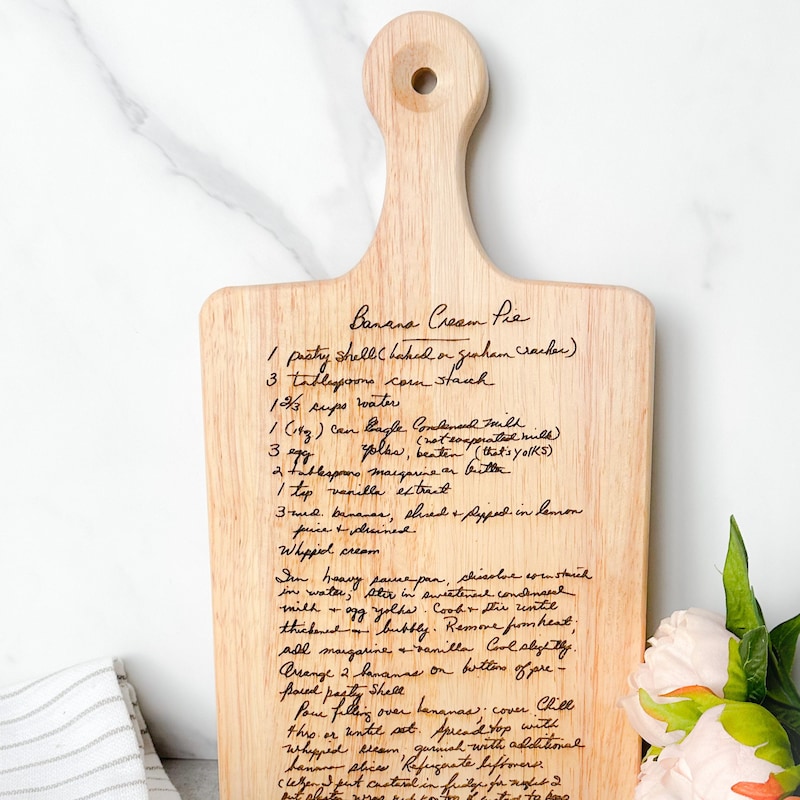 Banana Cream Pie
1 pastry shell (baked or graham cracker)
3 tablespoons corn starch
1 2/3 cups water
1 (14oz) can Eagle Condensed Milk
(not evaporated milk)
3 egg yolks, beaten (that's yolks)
2 tablespoons margarine or butter
1 tsp vanilla extract
3 med. bananas, sliced & dipped in lemon
juice & drained
Whipped cream
In heavy saucepan, dissolve corn starch
in water; stir in sweetened condensed
milk & egg yolks. Cook & stir until
thickened & bubbly. Remove from heat;
add margarine & vanilla Cool slightly.
Arrange 2 bananas on bottom of pre-
pared pastry shell
Pour filling over bananas; cover Chill
4 hrs. or until set. Spread top with
whipped cream, garnish with additional
banana slices Refrigerate leftovers.
(When I put custard in fridge for night I
put plastic wrap